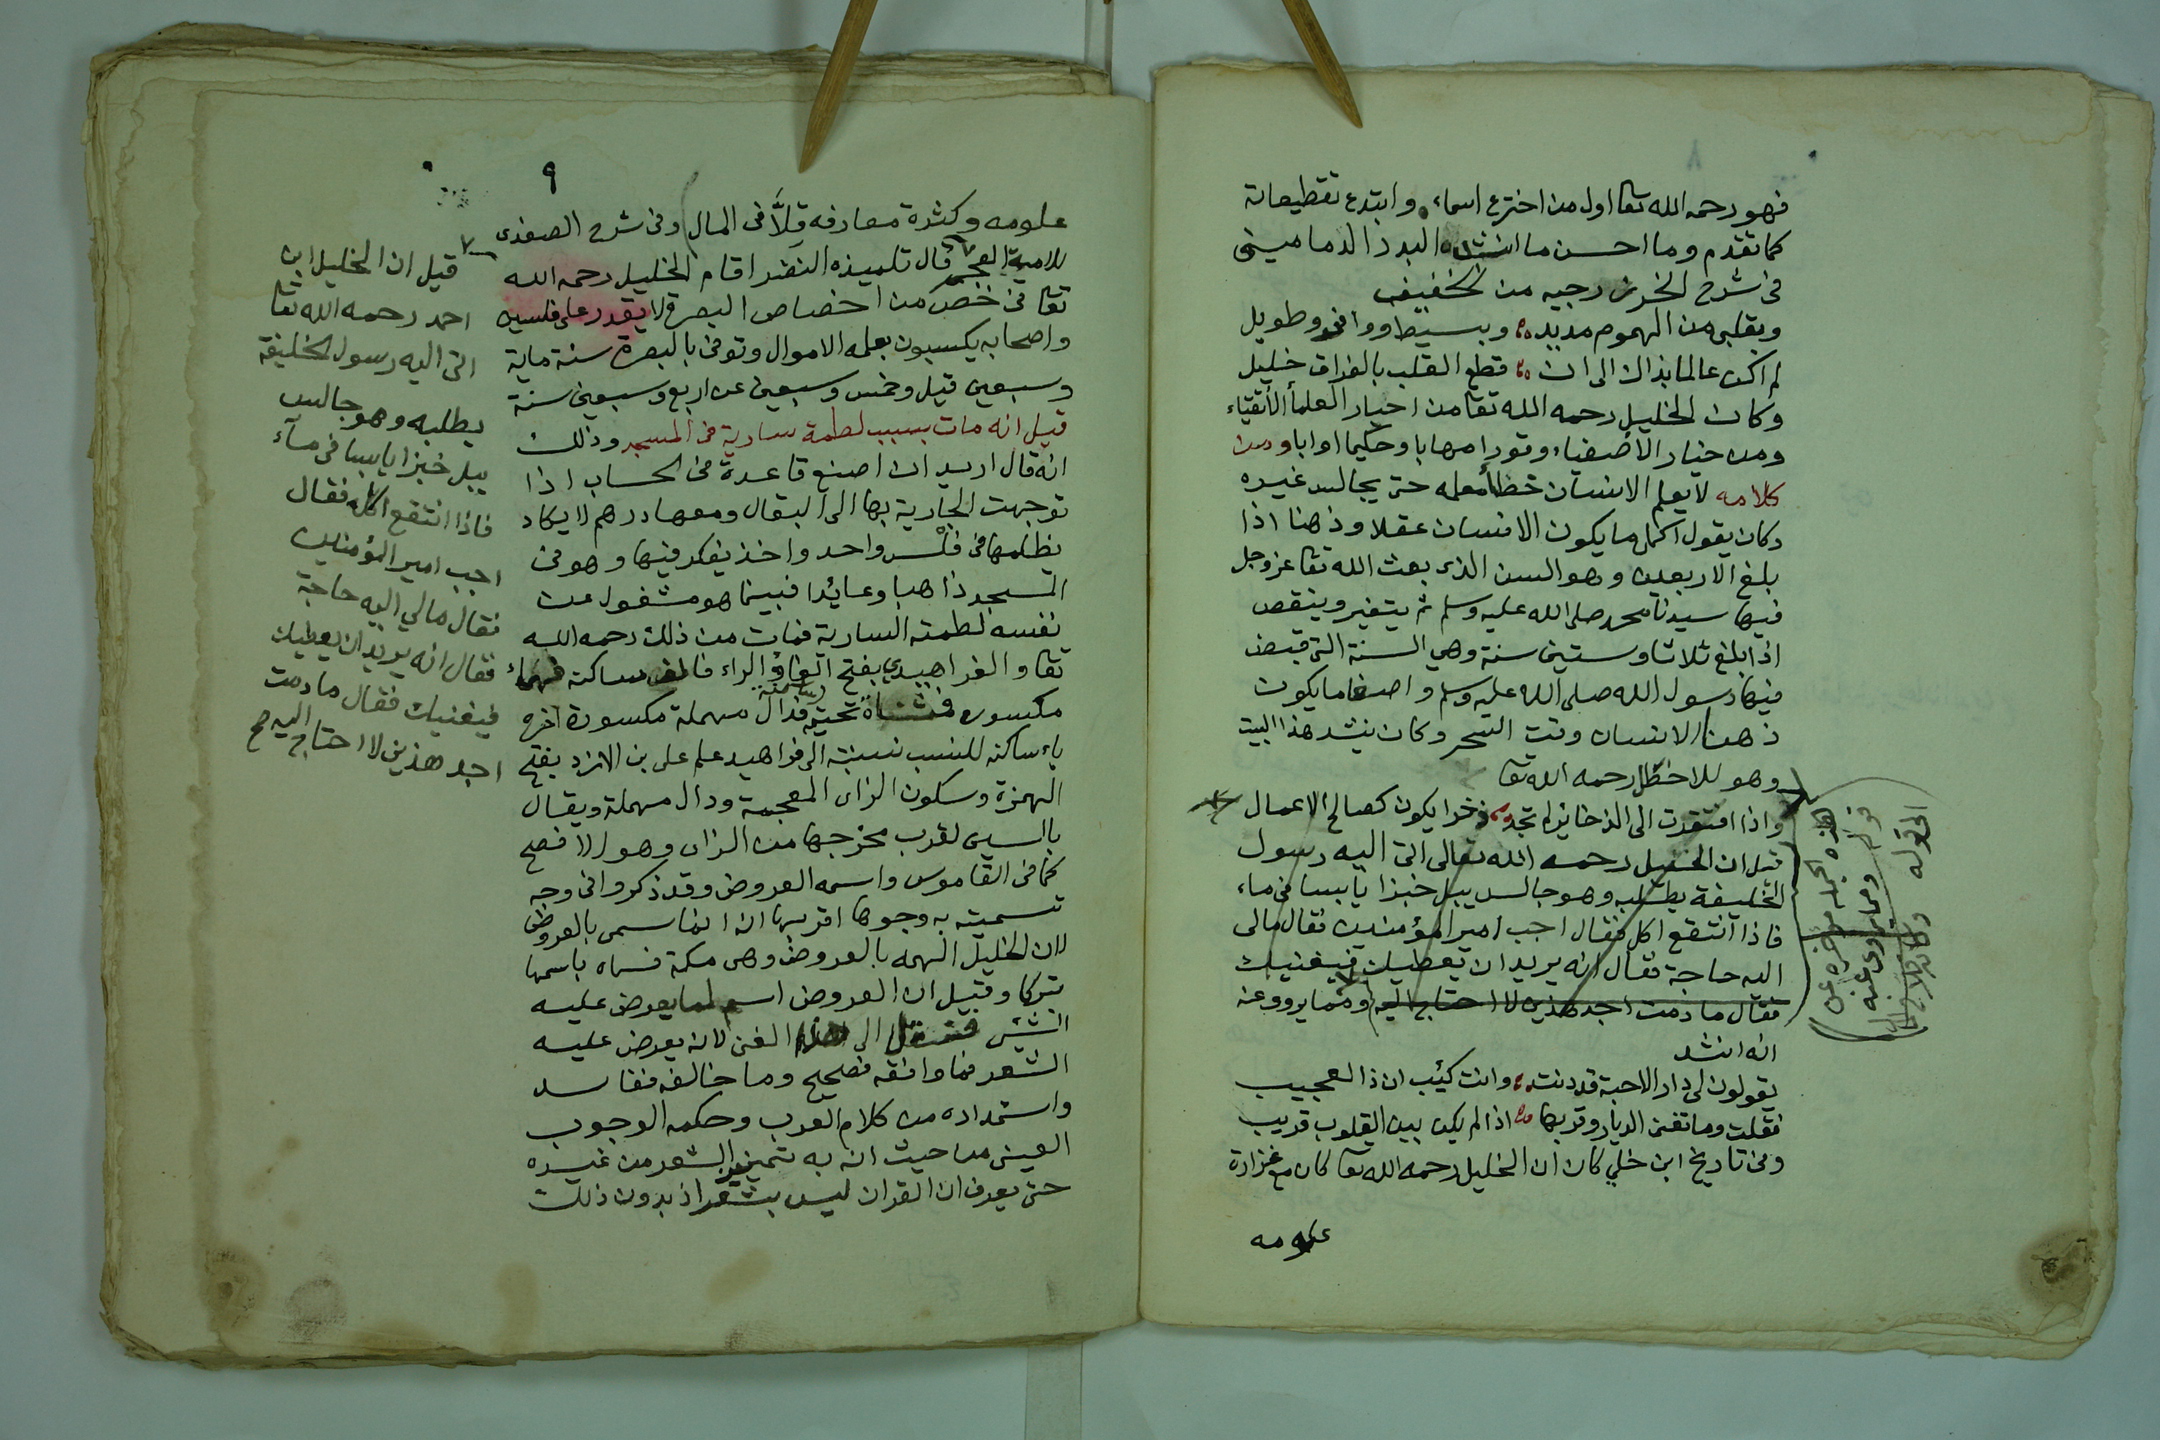 ٨
فهو رحمه الله تعا اول من اخترع اسماءه وابتدع تقطيعاته
كما تقدم وما احسن ما انشده البدر الدماميني
في شرح الخزرجيه من الخفيف
وبقلبي من الهموم مديد وبسيط ووافر وطويل
لم اكن عالما بذاك الى ان قطع القلب بالفراق خليل
وكان الخليل رحمه الله تعا من اخيار العلمأ الأتقياء
ومن خيار الأصفياء وقورا مهابا وحكيما اوابا ومن
كلامه لا يعلم الانسان خطأ معلمه حتى يجالس غيره
وكان يقول اكمل ما يكون الانسان عقلا وذهنا اذا
بلغ الاربعين وهو السن الذى بعث الله تعا عز وجل
فيها سيدنا محمد صلى الله عليه وسلم ثم يتغير وينقص
اذا بلغ ثلاثا وستين سنة وهي السنة التى قبض
فيها رسول الله صلى الله عليه وسلم واصفا ما يكون
ذهن الانسان وقت السحر وكان ينشد هذا البيت
وهو للاخطل رحمه الله تعا
واذا افتقرت الى الذخاير لم تجد ذخرا يكون كصالح الاعمال
قيل ان الخليل رحمه الله تعالى اتى اليه رسول
الخليفة يطلبه وهو جالس يبل خبزا يابسا فى ماء
فاذا انتقع اكل فقال اجب امير المؤمنين فقال مالى
اليه حاجة فقال انه يريد ان يعطيك فيغنيك
فقال ما دمت اجد هذين لا احتاج اليه ومما يروو عنه
انه انشد
يقولون لى دار الاحبة قد دنت وانت كئيب ان ذا لعجيب
فقلت وما تغنى الديار وقربها اذا لم يكن بين القلوب قريب
وفى تاريخ ابن خلي كان ان الخليل رحمه الله تعا كان مع غزارة
علومه
هذه الجملة مؤخره عن
قوله ومما روى عنه
الى قوله
٩
علومه وكثرة معارفه قِلاًّ فى المال وفى شرح الصفدى
للامية العجم قال تلميذه النضر اقام الخليل رحمه الله
تعا فى خص من اخصاص البصرة لا يقدر على فلسين
واصحابه يكسبون بعلمه الاموال وتوفى بالبصرة سنة ماية
وسبعين قيل وخمس وسبعين عن اربع وسبعين سنة
قيل انه مات بسبب لطمة سارية فى المسجد وذلك
انه قال اريد ان اصنع قاعدة فى الحساب اذا
توجهت الجارية بها الى البقال ومعها درهم لا يكاد
يظلمها فى فلْس واحد واخذ يفكر فيها وهو فى
المسجد ذاهبا وعائدا فبينما هو مشغول عن
نفسه لطمته السارية فمات من ذلك رحمه الله
تعا والفراهيدي بفتح الفاؤ الراء فالف ساكنة فهاء
مكسوره فمثناة تحتية فدال مهملة مكسورة اخره
ياء ساكنه للنسب نسبة الى فراهيد علم على بن الازد بفتح
الهمزة وسكون الزاى المعجمة ودال مهملة ويقال
بالسين لقرب مخرجها من الزاى وهو الافصح
كما فى القاموس واسمه العروض وقد ذكروا فى وجه
تسميته به وجوها اقربها انه انما سمى بالعروض
لان الخليل الهمه بالعروض وهى مكة فسماه باسمها
تبركا وقيل ان العروض اسم لما يعرض عليه
الشئ فنقل الى هذا الفن لانه يعرض عليه
الشعر فما وافقه فصحيح وما خالفه ففاسد
واستمداده من كلام العرب وحكمه الوجوب
العينى من حيث انه به تتميز الشعر من غيره
حتى يعرف ان القران ليس بشعر اذ بدون ذلك
قيل ان الخليل ابن
احمد رحمه الله تعا
اتى اليه رسول الخليفة
يطلبه وهو جالس
يبل خبزا يابسا فى مآء
فاذا انتقع اكل فقال
اجب امير المؤمنين
فقال مالي اليه حاجة
فقال انه يريد ان يعطيك
فيغنيك فقال ما دمت
اجد هذين لا احتاج اليه صح